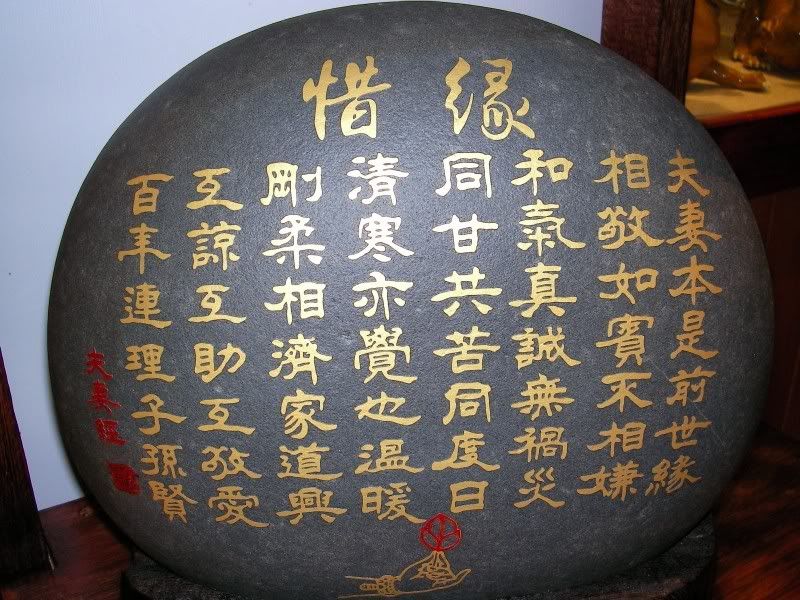 惜緣
夫妻本是前世緣
相敬如賓不相嫌
和氣真誠無禍災
同甘共苦同度日
清寒亦覺也溫暖
剛柔相濟家道興
互諒互助互敬愛
百年連理子孫賢
夫妻經